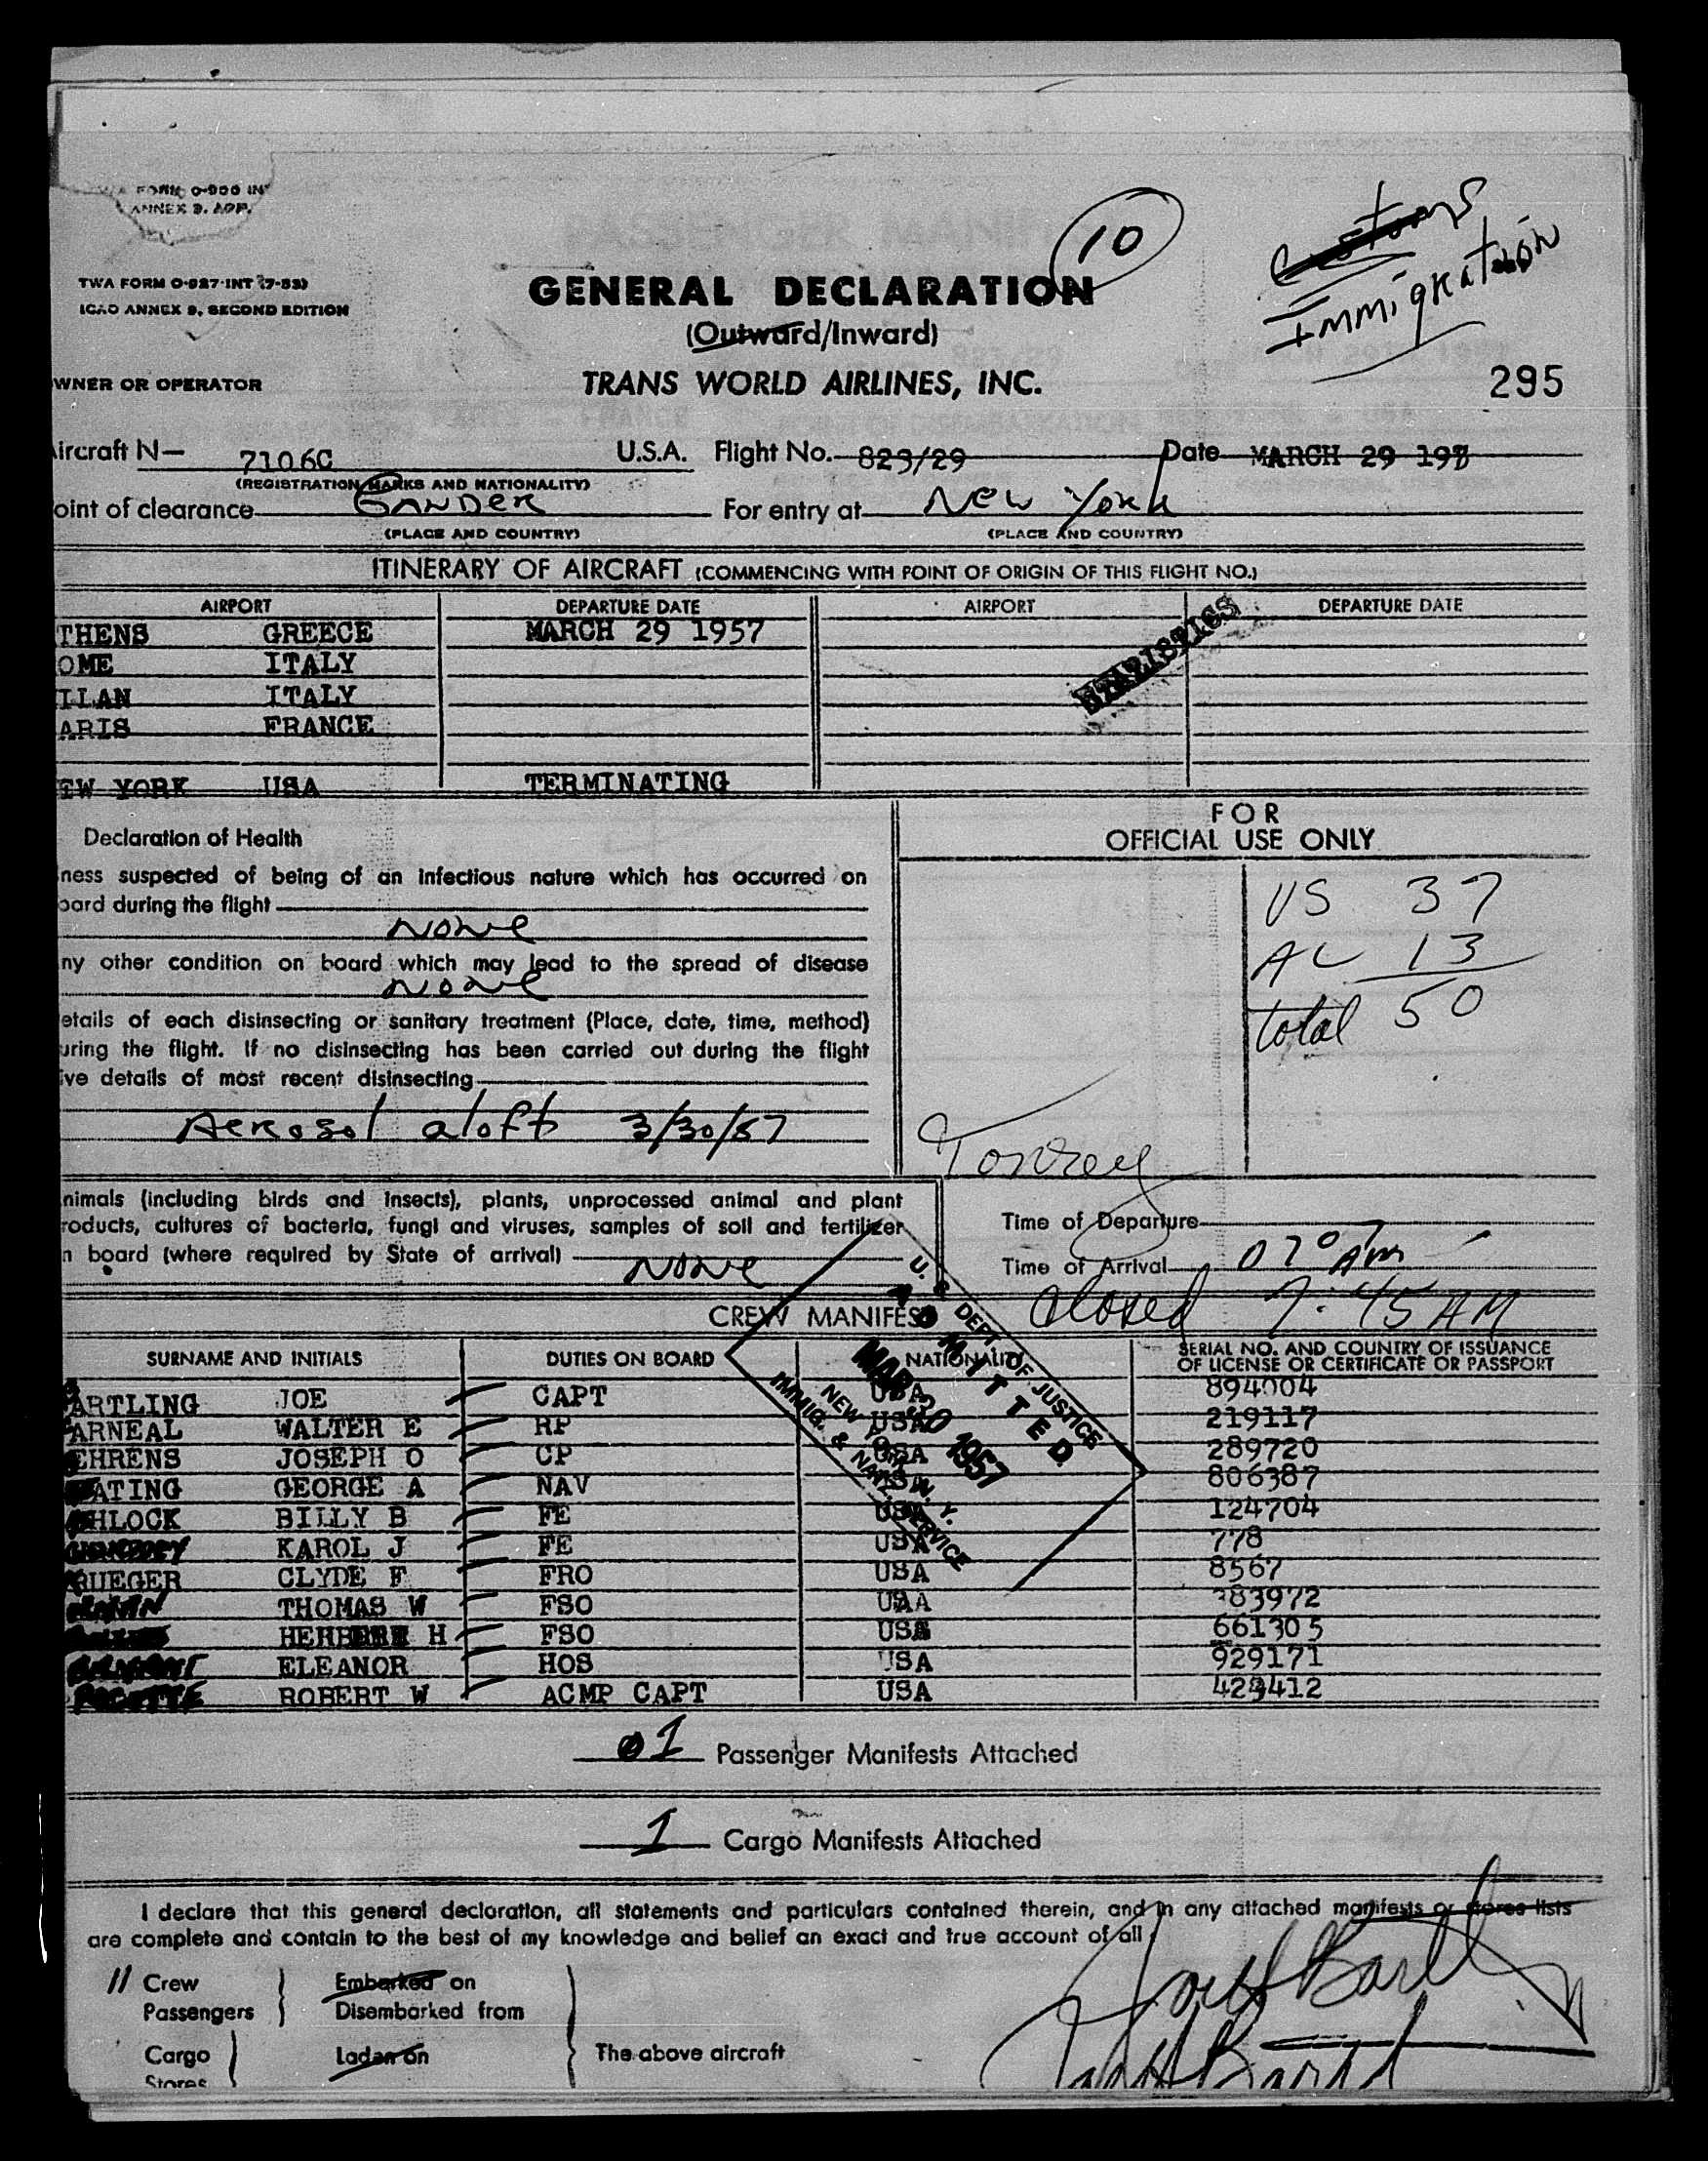 TWA FORM O-927-INT (7-53)
ICAO ANNEX 9, SECOND EDITION
10
Customs
Immigration
GENERAL DECLARATION
(Outward/Inward)
WNER OR OPERATOR
TRANS WORLD AIRLINES, INC.
295
ircraft N— 7106C U.S.A. Flight No. 823/29 Date MARCH 29 195
(REGISTRATION MARKS AND NATIONALITY)
oint of clearance Gander For entry at New York
(PLACE AND COUNTRY) (PLACE AND COUNTRY)
ITINERARY OF AIRCRAFT (COMMENCING WITH POINT OF ORIGIN OF THIS FLIGHT NO.)
AIRPORT DEPARTURE DATE AIRPORT DEPARTURE DATE
THENS GREECE MARCH 29 1957
OME ITALY
ILAN ITALY
ARIS FRANCE
EW YORK USA TERMINATING
STATISTICS
Declaration of Health
ness suspected of being of an infectious nature which has occurred on
oard during the flight
None
ny other condition on board which may lead to the spread of disease
None
etails of each disinsecting or sanitary treatment (Place, date, time, method)
uring the flight. If no disinsecting has been carried out during the flight
ive details of most recent disinsecting
Aerosol aloft 3/30/57
FOR
OFFICIAL USE ONLY
US 37
AL 13
total 50
nimals (including birds and insects), plants, unprocessed animal and plant
roducts, cultures of bacteria, fungi and viruses, samples of soil and fertilizer
n board (where required by State of arrival) None
Time of Departure
Time of Arrival
Closed 7:45 AM
CREW MANIFEST
U. S. DEPT. OF JUSTICE
ADMITTED
MAR 30 1957
NEW YORK, N. Y.
IMMIG. & NATZ. SERVICE
SURNAME AND INITIALS DUTIES ON BOARD NATIONALITY SERIAL NO. AND COUNTRY OF ISSUANCE OF LICENSE OR CERTIFICATE OR PASSPORT
ARTLING JOE CAPT USA 894004
ARNEAL WALTER E RP USA 219117
EHRENS JOSEPH O CP USA 289720
ATING GEORGE A NAV USA 806387
HLOCK BILLY B FE USA 124704
KAROL J FE USA 778
RUEGER CLYDE F FRO USA 8567
THOMAS W FSO USA 383972
HERBERT H FSO USA 661305
ELEANOR HOS USA 929171
ROBERT W ACMP CAPT USA
1 Passenger Manifests Attached
1 Cargo Manifests Attached
I declare that this general declaration, all statements and particulars contained therein, and in any attached manifests or stores lists
are complete and contain to the best of my knowledge and belief an exact and true account of all
11 Crew Embarked on
Passengers Disembarked from
Cargo Laden on The above aircraft
Stores